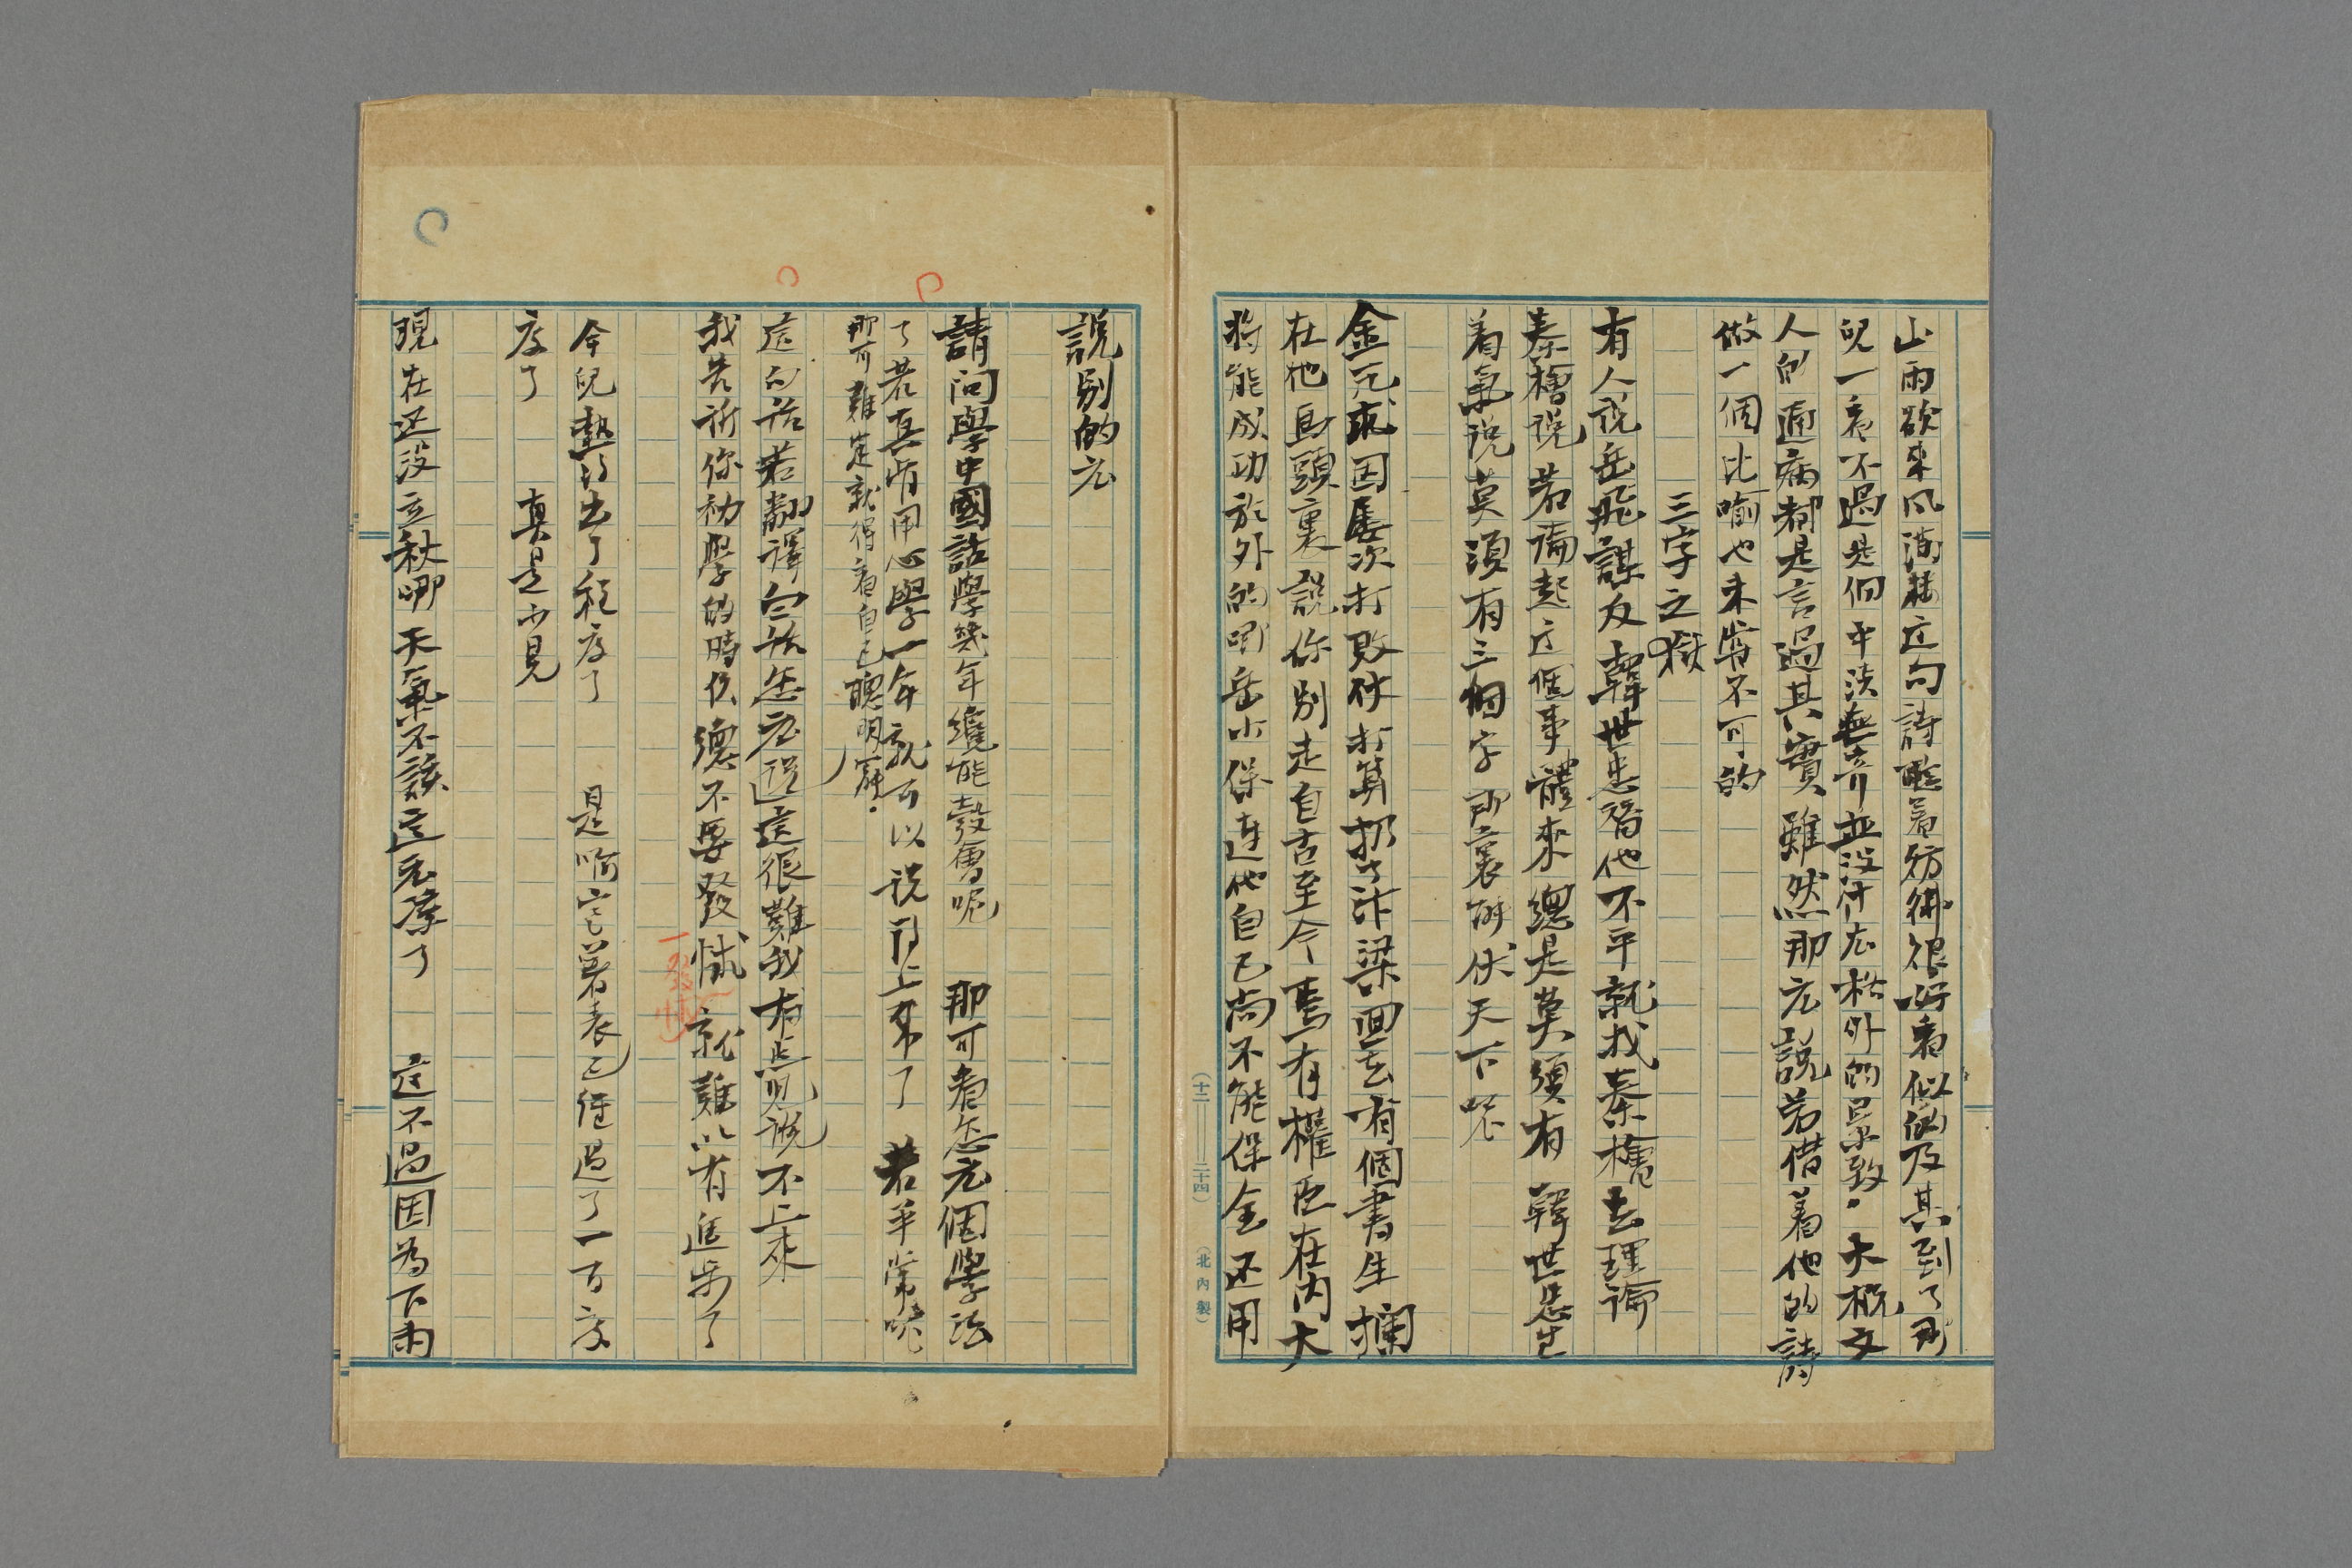 山雨欲来风满楼这句詩瞧着彷彿很好看似的及其到了那
兒一看不過是個平淡無奇並没什么格外的景致大概文
人的通病都是言過其實雖然那么說若借着他的詩
做一個比喻也未嘗不可的
三字之獄
有人说岳飛謀反韓世忠替他不平就找秦檜去理論
秦檜说若論起这個事體來總是莫須有韓世忠生
着氣说莫須有三個字那裏能伏天下呢
金兀朮因屡次打败仗打算扔了汴梁回去有個書生攔
在他馬頭裏説你别走自古至今焉有權臣在内大
将能成功於外的呢岳少保連他自己尚不能保全还用
(十二——二十四) (北内製)
説别的么
請问學中國話學幾年纔能彀會呢 那可看怎么個學法
了若真肯用心學一年就可以说得上来了 若平常
那可難定就得看自己聰明
這句話若翻譯白話怎么説這很難我有点兒说不上來
我告訴你初學的時候總不要發愁就難以有進步了
一發愁
今兒熱得出了程度了 是啊寒暑表已經過了一百度
度了 真是少見
現在还没立秋哪天氣不該這么凉了 这不過因为下雨